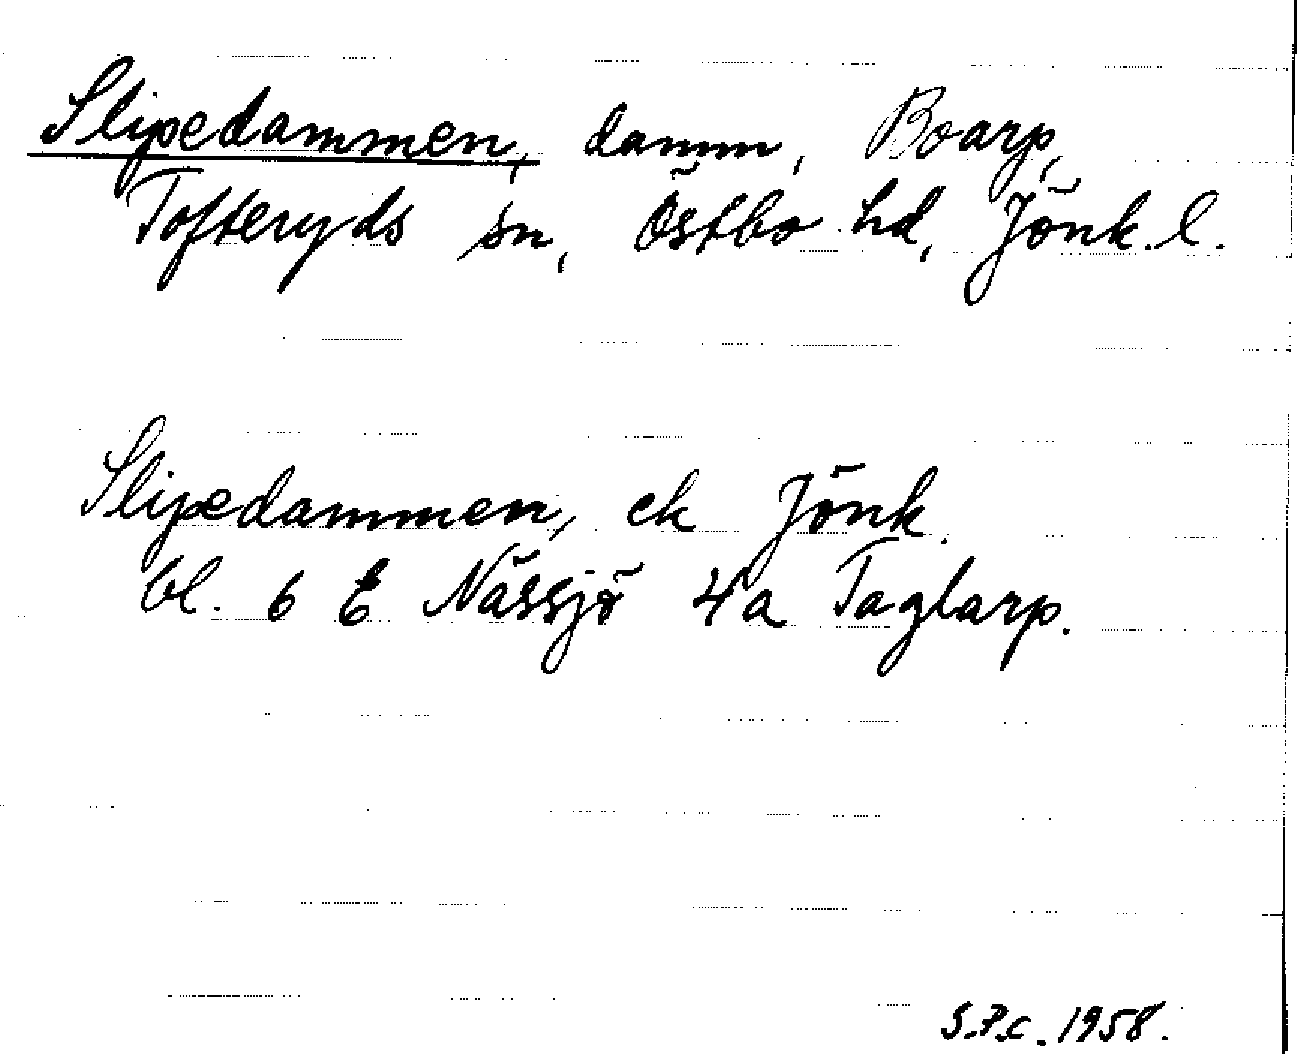 Slipedammen, damm, Boarp,
Tofteryds sn, Östbo hd, Jönk. l.
Slipedammen, ek Jönk.
bl. 6 E Nässjö 4a Taglarp.
S.F.C. 1958.